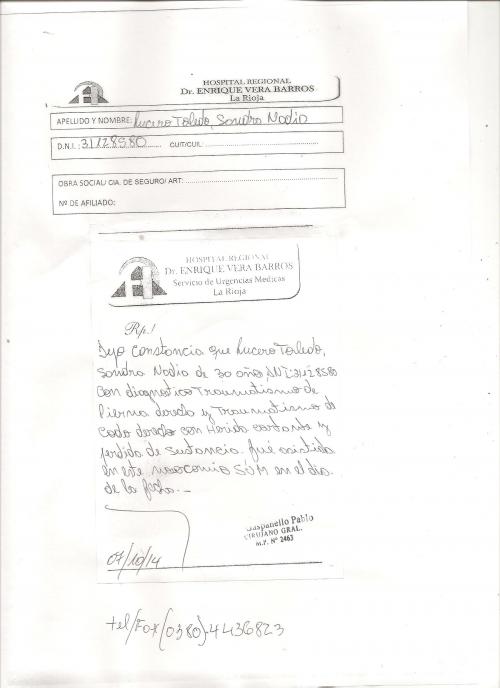 HOSPITAL REGIONAL
Dr. ENRIQUE VERA BARROS
La Rioja
APELLIDO Y NOMBRE: Lucero Toledo, Sandra Nadia
D.N.I.: 31128580 CUIT/CUIL:
OBRA SOCIAL/ CIA. DE SEGURO/ ART:
Nº DE AFILIADO:
HOSPITAL REGIONAL
Dr. ENRIQUE VERA BARROS
Servicio de Urgencias Medicas
La Rioja
Rp.!
Dejo constancia que Lucero Toledo,
Sandra Nadia de 30 años, DNI: 31128580
con diagnostico Traumatismo de
Pierna derecha y Traumatismo de
codo derecho con Herida cortante y
perdida de sustancia fué asistida
en este nosocomio SUM en el dia
de la fecha._
07/10/14
Gaspanello Pablo
CIRUJANO GRAL.
M.P. Nº 2463
tel/Fax (0380)-4436823